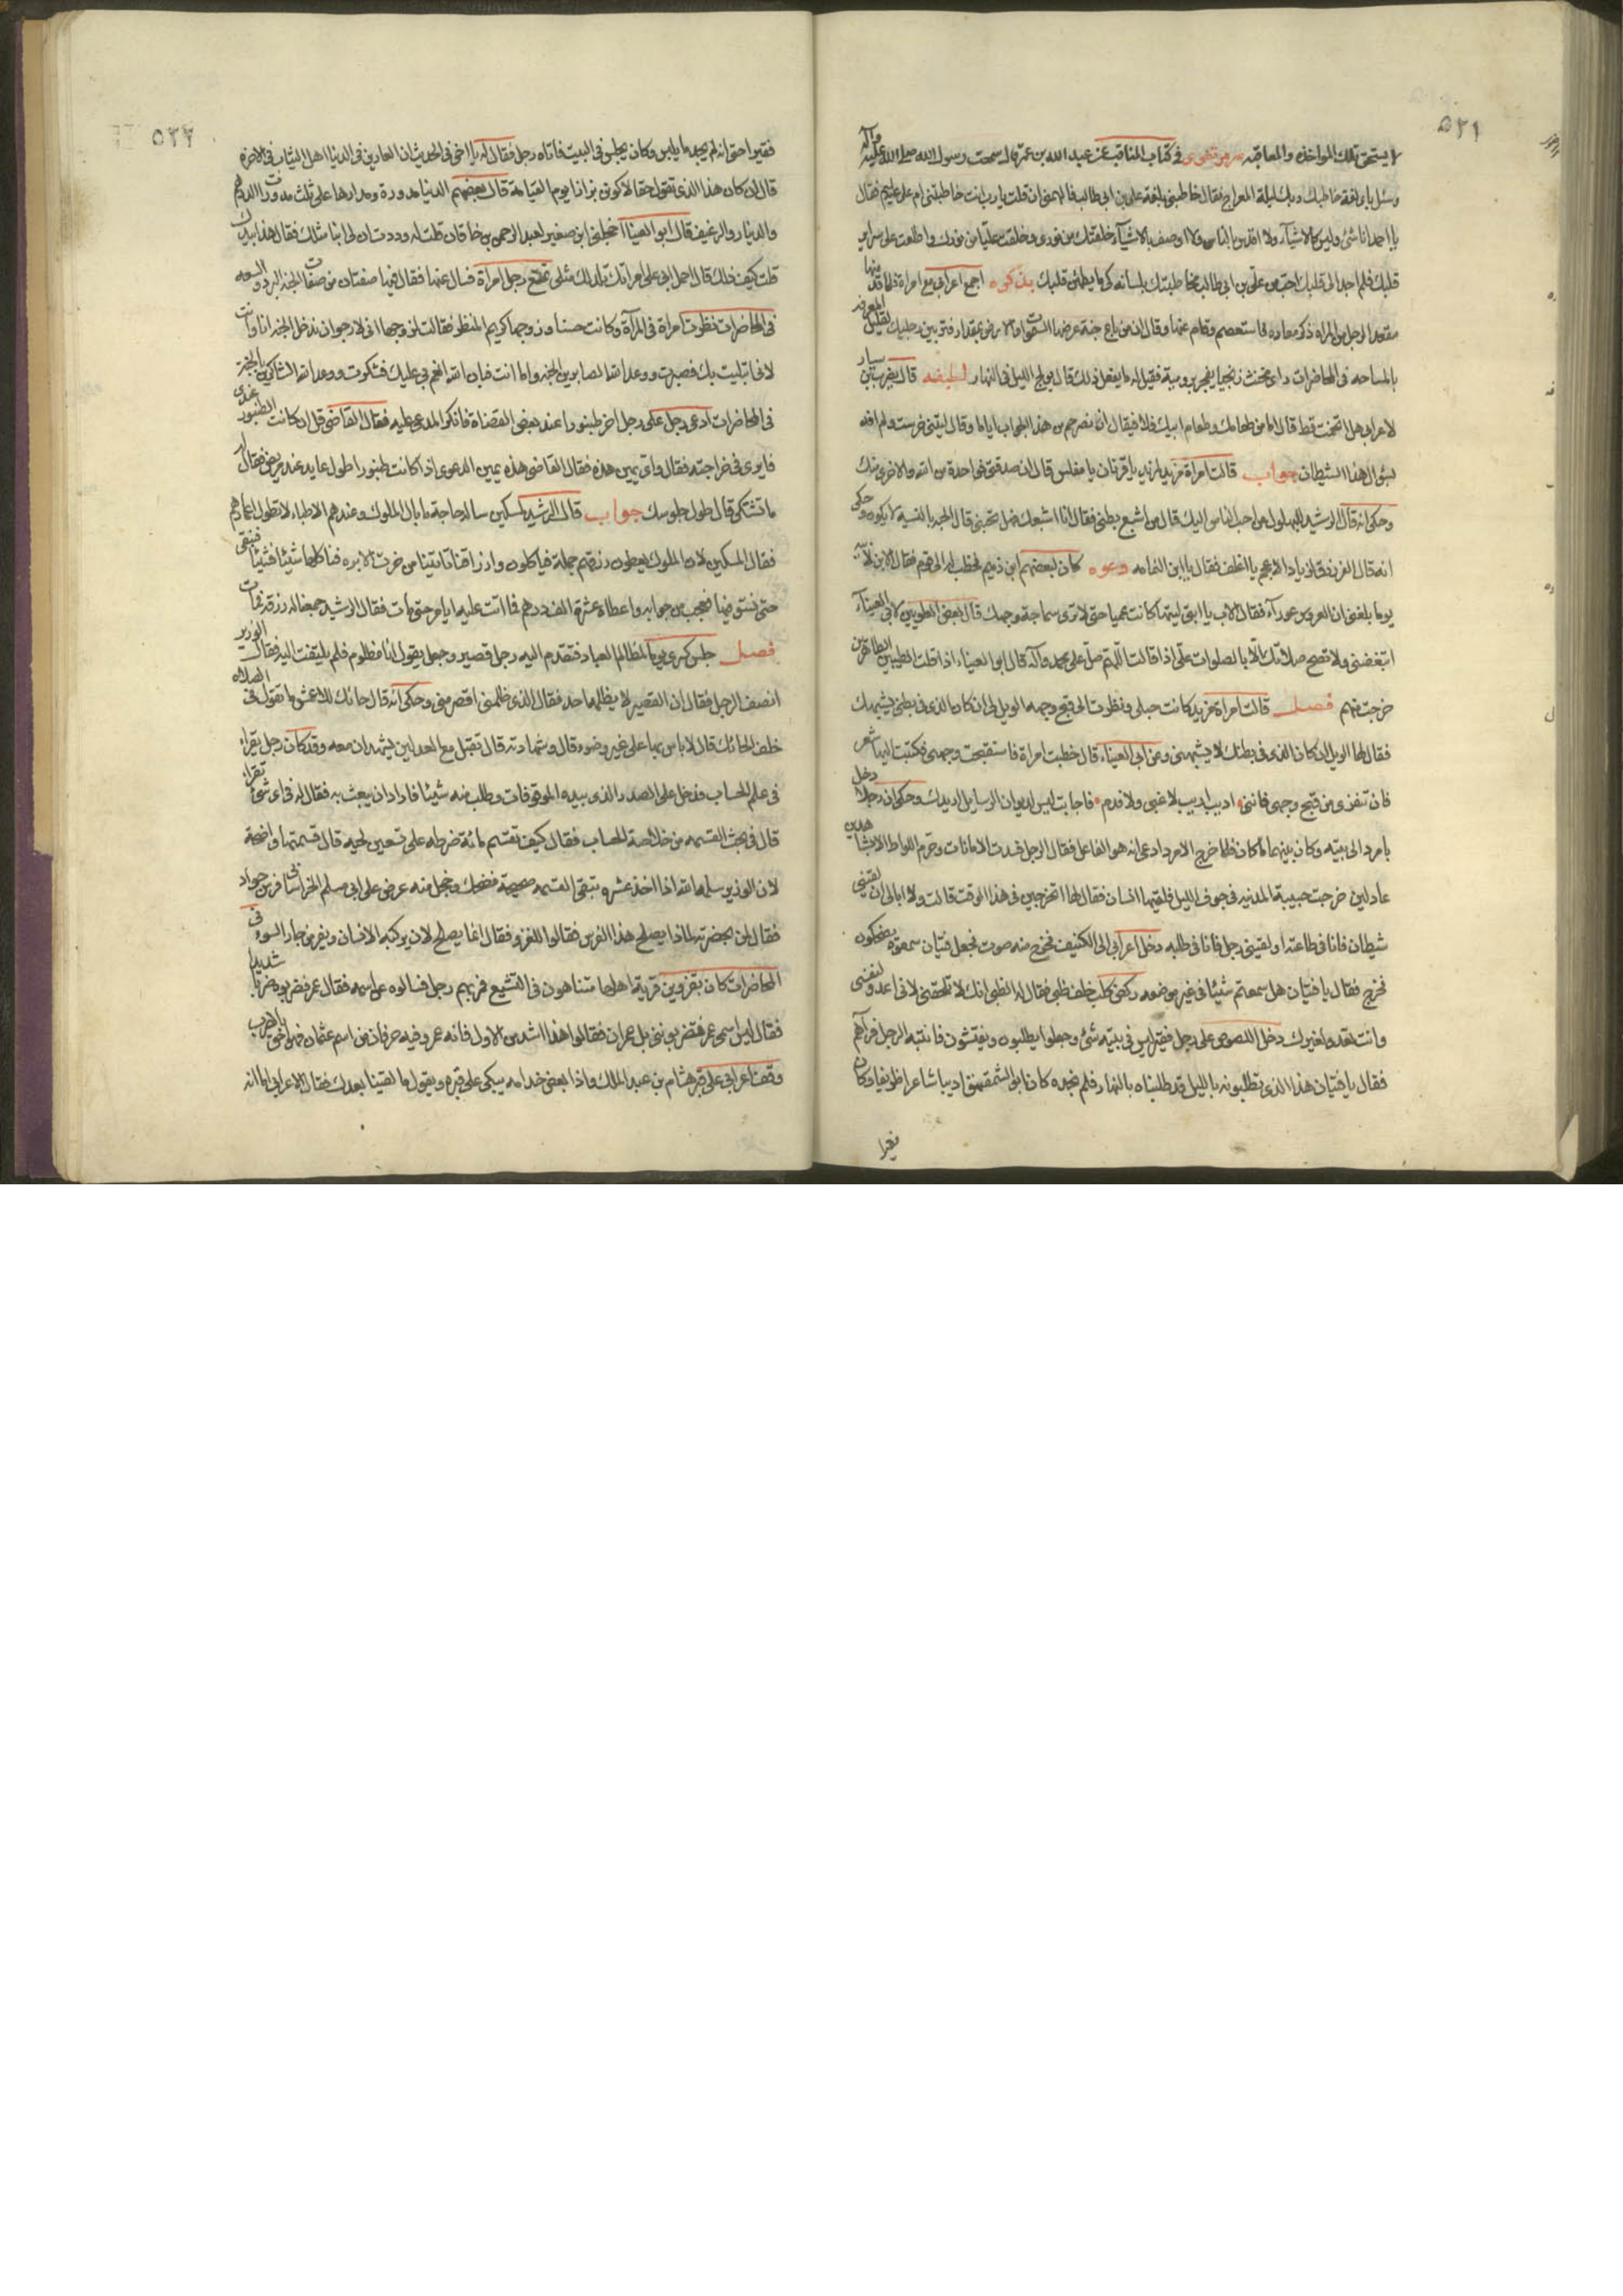 ٥٢١
لا يستحق تلك المواخذه والمعاقبه سر مرتضوى فى كتاب المناقب عن عبد الله بن عمر قال سمعت رسول الله صلى الله عليه وآله
وسئل باى لغة خاطبك ربك ليلة المعراج فقال خاطبنى بلغة على بن ابى طالب فالهمنى ان قلت يا رب انت خاطبتنى ام على عليه فقال
يا احمد انا شئ وليس كالاشيآء ولا اقاس بالناس ولا اوصف بالاشيآء خلقتك من نورى وخلقت عليا من نورك واطلعت على سراير
قلبك فلم اجد الى قلبك احب من على بن ابى طالب فخاطبتك بلسانه كى ما يطمئن قلبك اجمع اعرابى مع امراة فلما قعد منها
مقعد الرجل من المراه ذكر معاده فاستعصم وقام عنها وقال ان من باع جنة عرضها السموات والارض بمقدار فتر بين رجليك لقليل المعرفه
بالمساحه فى المحاضرات راى مخنث زنجيا يفجر برومية فقيل له ما يفعل ذلك قال يولج الليل فى النهار لطيفه قال
لاعرابى هل اتخمت قط قال اما من طعامك وطعام ابيك فلا فيقال ان حم من هذا الجواب اياما وقال ليتنى خرست ولم افه
بسؤال هذا الشيطان جواب قالت امراة مزيد لمزيد يا قرنان يا مفلس قال ان صدقت فواحدة من الله والاخرى منك
وحكى انه قال الرشيد للبهلول من احب الناس اليك قال من اشبع بطنى فقال انا اشبعك فهل تحبنى قال الحب بالنسيه لا يكون وحكى
انه قال الفرزدق لزياد الاعجم يا اغلف فقال يا ابن النمامه كان لبعضهم ابن ذميم فخطب له الى قوم فقال الابن لابيه
يوما بلغنى ان العروس عورآء فقال الاب يا ابنى ليتها كانت عميا حتى لا ترى سماجة وجهك قال بعض العلويين لابى العينآء
اتبغضنى ولا تصح صلاتك الا بالصلوات على اذا قالت اللهم صل على محمد وآله قال ابو العيناء اذا قلت الطيبين الطاهرين
خرجت منهم فصل قالت امراة مزيد كانت حبلى ونظرت الى قبح وجهه الويل لى ان كان الذى فى بطنى يشبهك
فقال لها الويل ان كان الذى فى بطنك لا يشبهنى وعن ابى العيناء قال خطبت امراة فاستقبحت وجهى فكتبت اليها شعر
فان تنفرى من قبح وجهى فاننى اديب اريب لا غبى ولا فدم فاجابت ليس لديوان الرسايل اريدك وحكى ان رجلا دخل
بامرد الى بيته وكان بينهما ما كان فلما خرج الامرد ادعى انه هو الفاعل فقال الرجل فسدت الامانات وحرم اللواط الا بشاهدين
عادلين خرجت حبيبة المدنيه فى جوف الليل فلقيها انسان فقال لها اتخرجين فى هذا الوقت قالت ولا ابالى ان لقينى
شيطان فانا فى طاعته او لقينى رجل فانا فى طلبه دخل اعرابى الى الكنيف فخرج منه صوت فجعل فتيان سمعوه يضحكون
فخرج فقال يا فتيان هل سمعتم شيئا فى غير موضعه ركض كلب خلف ظبى فقال له الظبى انك لا تلحقنى لانى اعدو لنفسى
وانت تعدو لغيرك دخل اللصوص على رجل فقير ليس فى بيته شئ وجعلوا يطلبون ويفتشون فانتبه الرجل فرآهم
فقال يا فتيان هذا الذى تطلبونه بالليل قد طلبناه بالنهار فلم نجده كان ابو الشمقمق اديبا شاعرا ظريفا وكان
فقيرا
٥٢٢
فقيرا حتى انه لم يجد ما يلبس وكان يجلس فى البيت فاتاه رجل فقال له يا اخى فى الحديث ان العارين فى الدنيا اهل الثياب فى الاخرة
قال ان كان هذا الذى تقول حقا لاكونن بزازا يوم القيامة قال بعضهم الدنيا مدورة ومدارها على ثلث مدورات الدرهم
والدينار والرغيف قال ابو العينا اخجلنى ابن صغير لعبد الرحمن بن خاقان قلت له وددت ان لى ابنا مثلك فقال هذا بيدك
قلت كيف ذلك قال احمل ابى على امراتك تلد لك مثلى رجل امراة فسال عنها فقال فيها صفتان من صفات الجنه البرد والسعه
فى المحاضرات نظرت امراة فى المرآة وكانت حسنا وزوجها كريه المنظر فقالت لزوجها انى لارجو ان ندخل الجنه انا وانت
لانى ابتليت بك فصبرت ووعد الله الصابرين الجنه واما انت فان الله انعم بى عليك فشكرت ووعد الله الشاكرين بالجنة
فى المحاضرات ادعى رجل على رجل اخر طنبورا عند بعض القضاة فانكر المدعى عليه فقال القاضى قل ان كانت الطنبور عندى
فايرى فى خراجته فقال واى يمين هذه فقال القاضى هذه يمين الدعوى اذا كانت طنبورا طول عايد عند مريض فقال له
ما تشتكى قال طول جلوسك جواب قال الرشيد لمسكين ساله حاجة ما بال الملوك وعندهم الاطباء لا تطول اعمارهم
فقال المسكين لان الملوك يعطون رزقهم جملة فياكلون وارزاقنا تاتينا من خرت الابره فناكلها شيئا فشيئا فنبقى
حتى نستوفيها فعجب من جوابه واعطاه عشرة الف درهم فما اتت عليه ايام حتى مات فقال الرشيد جمعنا له رزقه فمات
فصل جلس كسرى يوما لمظالم العباد فتقدم اليه رجل قصير وجعل يقول انا مظلوم فلم يلتفت اليه فقال الوزير
انصف الرجل فقال ان القصير لا يظلمه احد فقال الذى ظلمنى اقصر منى وحكى انه قال حائك للاعمش ما تقول فى الصلاه
خلف الحائك قال لا باس بها على غير وضوء قال وشهادته قال تقبل مع العدلين يشهدان معه وقد كان رجل يقرأ
فى علم الحساب فدخل على الصدر الذى بيده الموقوفات وطلب منه شيئا فاراد ان يعبث به فقال له فى اى شئ تقرأ
قال فى بحث القسمه من خلاصة الحساب فقال كيف تقسم مائة ضرطه على تسعين لحيه قال قسمتها واضحة
لان الوزير سلمه الله اذا اخذ عشره تبقى القسمه صحيحة فضحك وخجل منه عرض على ابى مسلم الخراسانى فرس جواد
فقال لمن بحضرته لماذا يصلح هذا الفرس فقالوا للغزو فقال انما يصلح لان يركبه الانسان ويفر من جار السوء فى
المحاضرات كان بقزوين قرية اهلها متناهون فى التشيع فمر بهم رجل فسالوه عن اسمه فقال عمر فضربوه ضربا شديدا
فقال ليس اسمى عمر فضربونى بل عمران فقالوا هذا اشد من الاول فانه عمر وفيه حرفان من اسم عثمان فهو احق بالضرب
وقف اعرابى على قبر هشام بن عبد الملك واذا بعض خدامه يبكى على قبره ويقول ما لقينا بعدك فقال الاعرابى اما انه